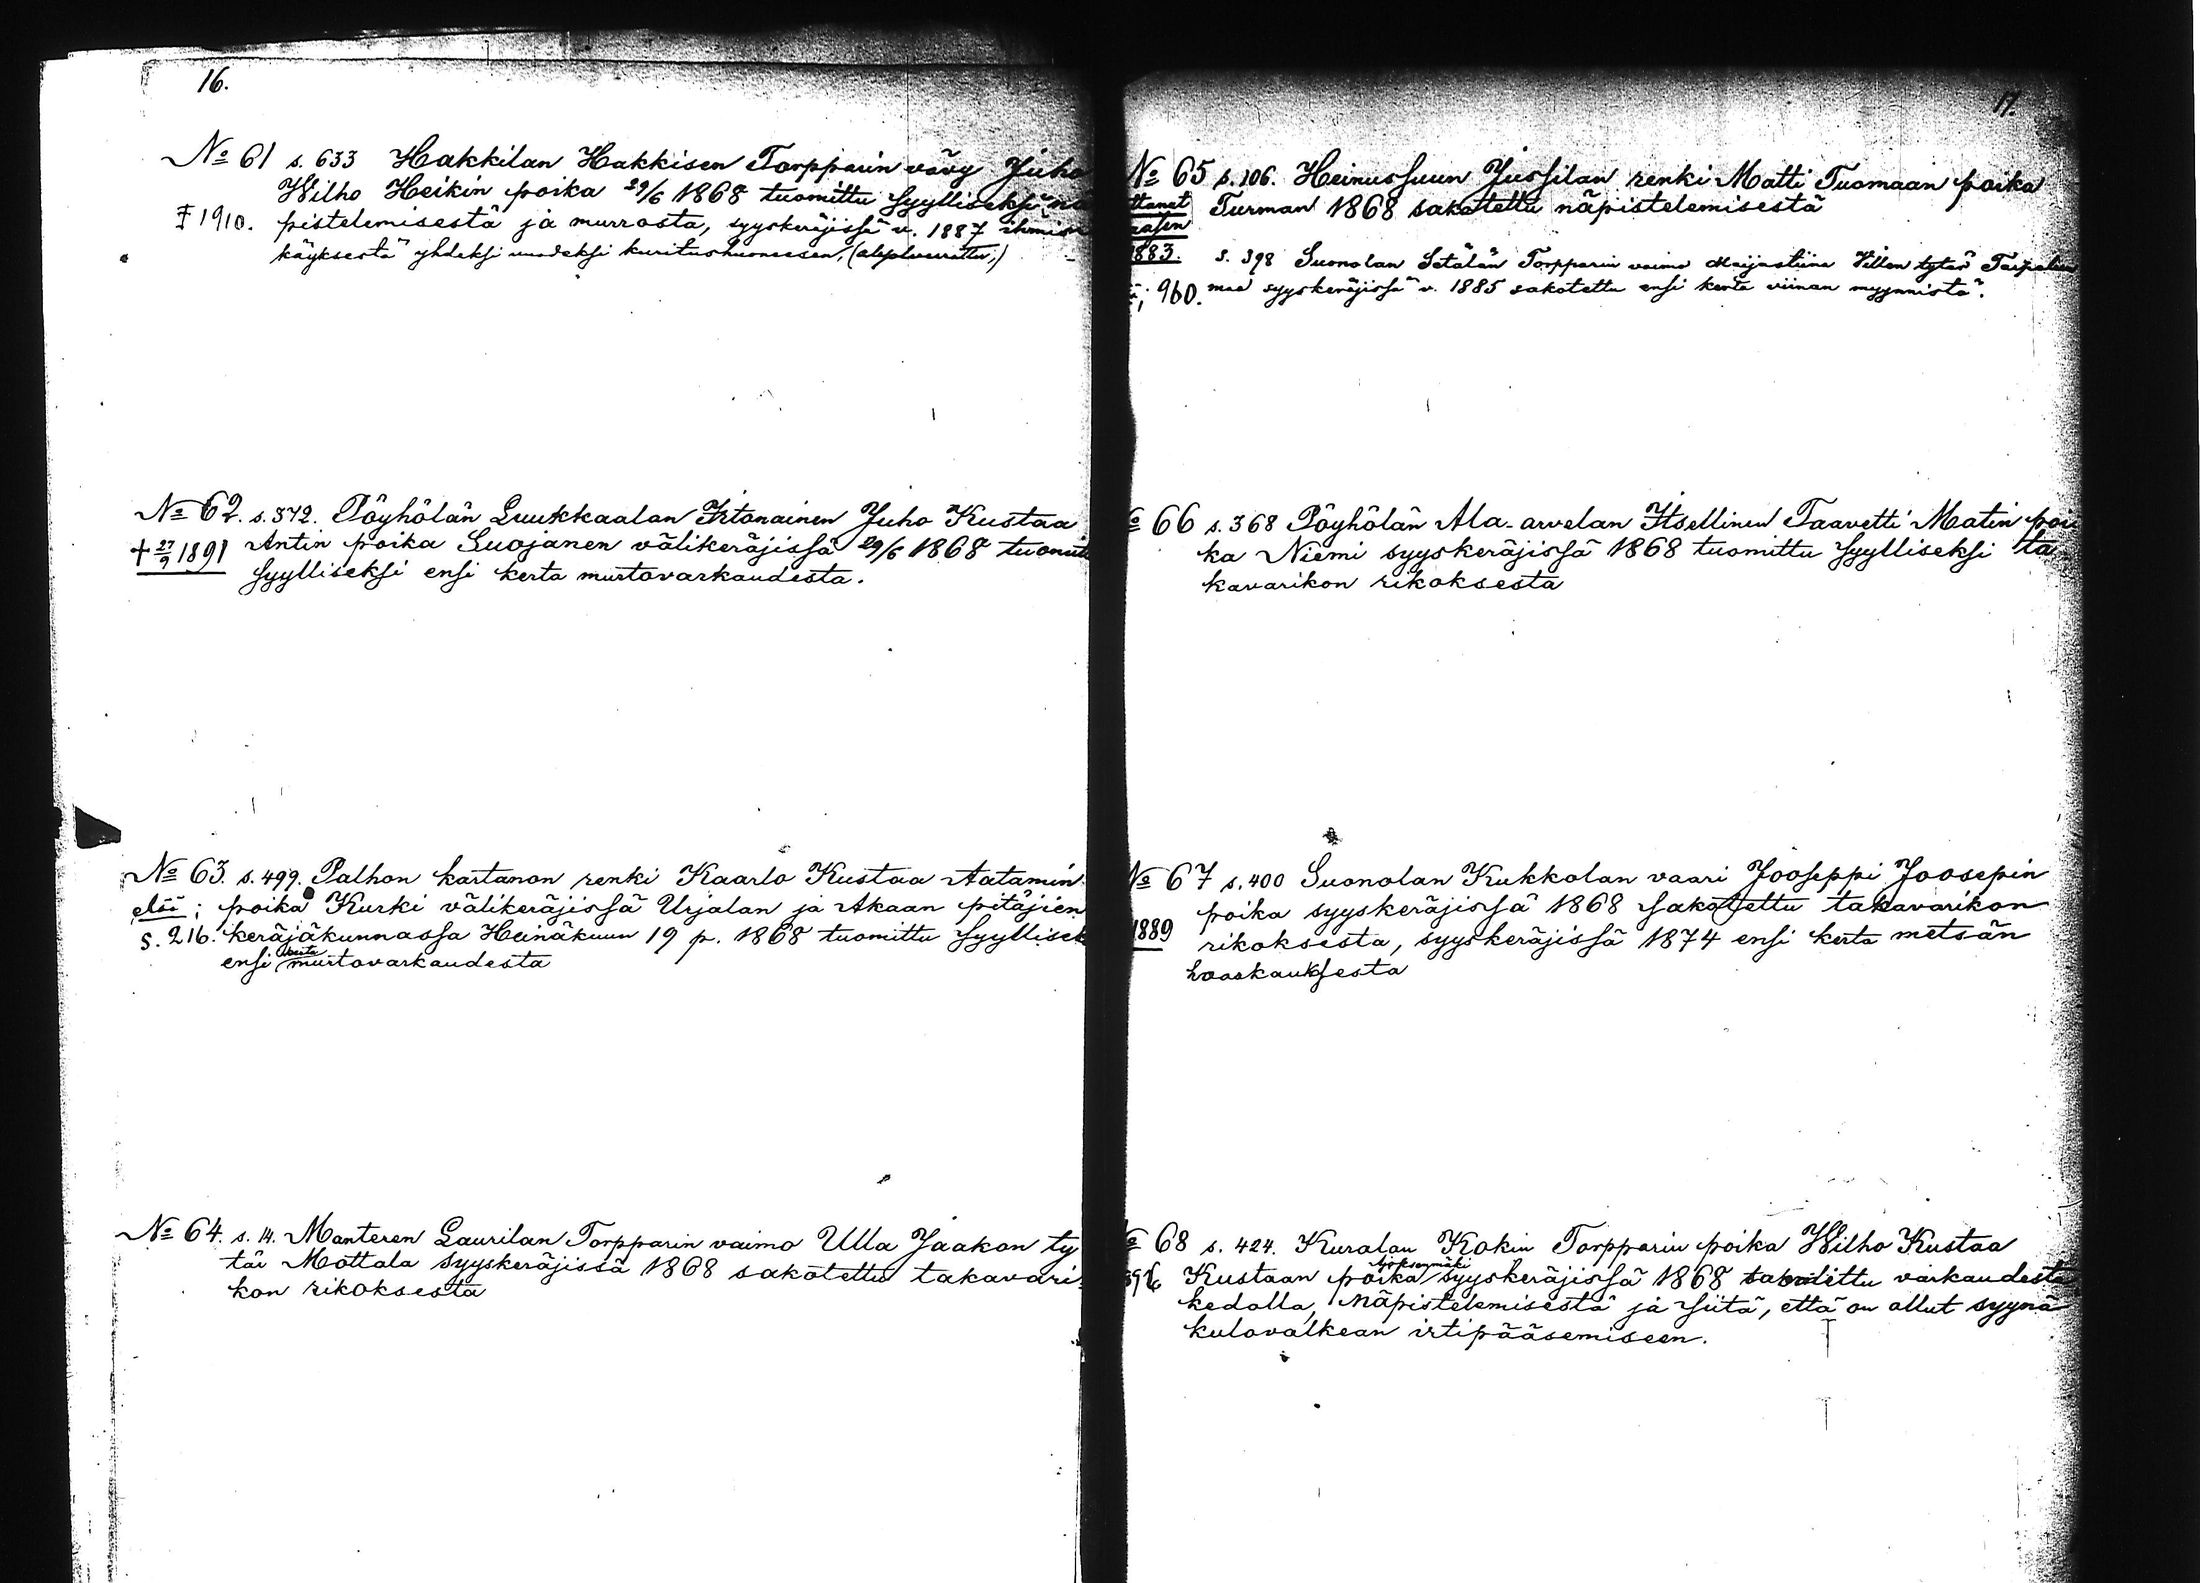 16.
№ 61 s. 633 Hakkilan Hakkisen Torpparin vävy Juho
Wilho Heikin poika 29/6 1868 tuomittu syylliseksi nä
1910. pistelemisestä ja murrosta, syyskeräjissä v. 1887
käyksestä yhdeksi vuodeksi kuritushuoneesen,
№ 62. s. 372. Pöyhölän Luukkaalan Irtonainen Juho Kustaa
+ 27/9 1891 Antin poika Suojanen välikeräjissä 29/6 1868 tuomittu
syylliseksi ensi kerta murtovarkaudesta.
№ 63. s. 499. Palhon kartanon renki Kaarlo Kustaa Aatamin
etsi; poika Kurki välikeräjissä Urjalan ja Akaan pitäjien
s. 216. keräjäkunnassa Heinäkuun 19 p. 1868 tuomittu syyllisek
ensi kerta murtovarkaudesta
№ 64. s. 14. Manteren Laurilan Torpparin vaimo Ulla Jaakon ty
tär Mottala syyskeräjissä 1868 sakotettu takavari-
kon rikoksesta
17.
№ 65 s. 106. Heinussuun Jussilan renki Matti Tuomaan poika
Turman 1868 sakotettu näpistelemisestä
1883. s. 398 Suonolan Setälän Torpparin vaimo Maijastiina Villen tytär
960. syyskeräjissä v. 1885 sakotettu ensi kerta viinan myynnistä.
№ 66 s. 368 Pöyhölän Ala-arvelan Itsellinen Taavetti Matin poi
ka Niemi syyskeräjissä 1868 tuomittu syylliseksi ta
kavarikon rikoksesta
№ 67 s. 400 Suonolan Kukkolan vaari Jooseppi Joosepin
poika syyskeräjissä 1868 sakotettu takavarikon
1889 rikoksesta, syyskeräjissä 1874 ensi kerta metsän
haaskauksesta
№ 68 s. 424. Kuralan Kokin Torpparin poika Wilho Kustaa
Kustaan poika syyskeräjissä 1868 varkaudesta
kedolla, näpistelemisestä ja siitä, että on ollut syynä
kulovalkean irtipääsemiseen.